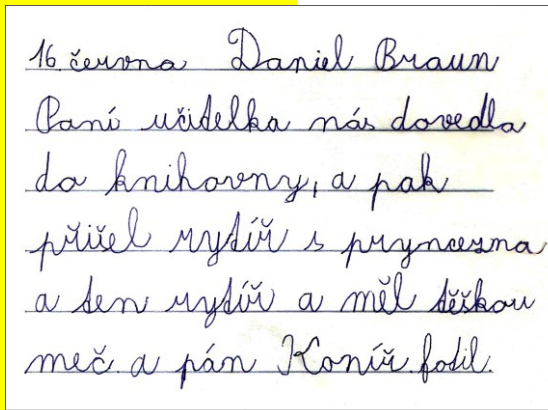 16. června Daniel Braun
Paní učitelka nás dovedla
do knihovny, a pak
přišel rytíř s pryncezna
a ten rytíř a měl těškou
meč a pán Koníř fotil.